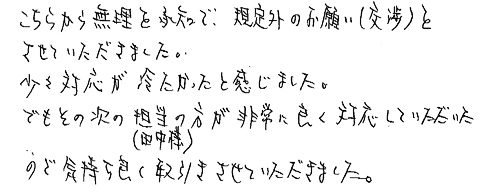 こちらから無理を承知で、規定外のお願い(交渉)を
させていただきました。
少々対応が冷たかったと感じました。
でもその次の担当の方が非常に良く対応していただいた
(田中様)
ので気持ち良く取引きさせていただきました。